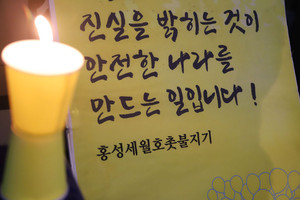 진실을 밝히는 것이
안전한 나라를
만드는 일입니다!
홍성세월호촛불지기